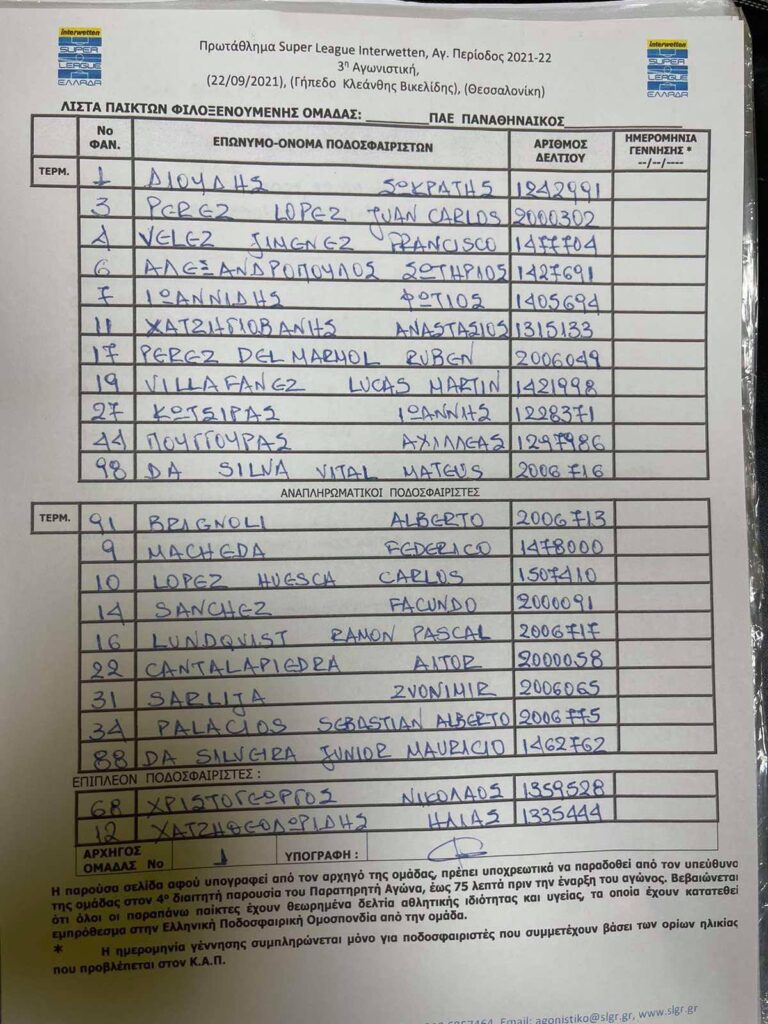 interwetten
SUPER
LEAGUE
ΕΛΛΑΔΑ
interwetten
SUPER
LEAGUE
ΕΛΛΑΔΑ
Πρωτάθλημα Super League Interwetten, Αγ. Περίοδος 2021-22
3η Αγωνιστική,
(22/09/2021), (Γήπεδο Κλεάνθης Βικελίδης), (Θεσσαλονίκη)
ΛΙΣΤΑ ΠΑΙΚΤΩΝ ΦΙΛΟΞΕΝΟΥΜΕΝΗΣ ΟΜΑΔΑΣ: ΠΑΕ ΠΑΝΑΘΗΝΑΙΚΟΣ
No ΦΑΝ. ΕΠΩΝΥΜΟ-ΟΝΟΜΑ ΠΟΔΟΣΦΑΙΡΙΣΤΩΝ ΑΡΙΘΜΟΣ ΔΕΛΤΙΟΥ ΗΜΕΡΟΜΗΝΙΑ ΓΕΝΝΗΣΗΣ * --/--/----
ΤΕΡΜ. 1 ΔΙΟΥΔΗΣ ΣΩΚΡΑΤΗΣ 1242991
3 PEREZ LOPEZ JUAN CARLOS 2000302
4 VELEZ JIMENEZ FRANCISCO 1477704
6 ΑΛΕΞΑΝΔΡΟΠΟΥΛΟΣ ΣΩΤΗΡΙΟΣ 1427691
7 ΙΩΑΝΝΙΔΗΣ ΦΩΤΙΟΣ 1405694
11 ΧΑΤΖΗΓΙΟΒΑΝΗΣ ΑΝΑΣΤΑΣΙΟΣ 1315133
17 PEREZ DEL MARMOL RUBEN 2006049
19 VILLAFANEZ LUCAS MARTIN 1421998
27 ΚΩΤΣΙΡΑΣ ΙΩΑΝΝΗΣ 1228371
44 ΠΟΥΓΓΟΥΡΑΣ ΑΧΙΛΛΕΑΣ 1297986
98 DA SILVA VITAL MATEUS 2006716
ΑΝΑΠΛΗΡΩΜΑΤΙΚΟΙ ΠΟΔΟΣΦΑΙΡΙΣΤΕΣ
ΤΕΡΜ. 91 BRIGNOLI ALBERTO 2006713
9 MACHEDA FEDERICO 1478000
10 LOPEZ HUESCA CARLOS 1507410
14 SANCHEZ FACUNDO 2000091
16 LUNDQVIST RAMON PASCAL 2006717
22 CANTALAPIEDRA AITOR 2000058
31 SARLIJA ZVONIMIR 2006065
34 PALACIOS SEBASTIAN ALBERTO 2006775
88 DA SILVEIRA JUNIOR MAURICIO 1462762
ΕΠΙΠΛΕΟΝ ΠΟΔΟΣΦΑΙΡΙΣΤΕΣ :
68 ΧΡΙΣΤΟΓΕΩΡΓΟΣ ΝΙΚΟΛΑΟΣ 1359528
12 ΧΑΤΖΗΘΕΟΔΩΡΙΔΗΣ ΗΛΙΑΣ 1335444
ΑΡΧΗΓΟΣ ΟΜΑΔΑΣ Νο 1 ΥΠΟΓΡΑΦΗ :
Η παρούσα σελίδα αφού υπογραφεί από τον αρχηγό της ομάδας, πρέπει υποχρεωτικά να παραδοθεί από τον υπεύθυνο
της ομάδας στον 4ο διαιτητή παρουσία του Παρατηρητή Αγώνα, έως 75 λεπτά πριν την έναρξη του αγώνος. Βεβαιώνεται
ότι όλοι οι παραπάνω παίκτες έχουν θεωρημένα δελτία αθλητικής ιδιότητας και υγείας, τα οποία έχουν κατατεθεί
εμπρόθεσμα στην Ελληνική Ποδοσφαιρική Ομοσπονδία από την ομάδα.
* Η ημερομηνία γέννησης συμπληρώνεται μόνο για ποδοσφαιριστές που συμμετέχουν βάσει των ορίων ηλικίας
που προβλέπεται στον Κ.Α.Π.
Email: agonistiko@slgr.gr, www.slgr.gr